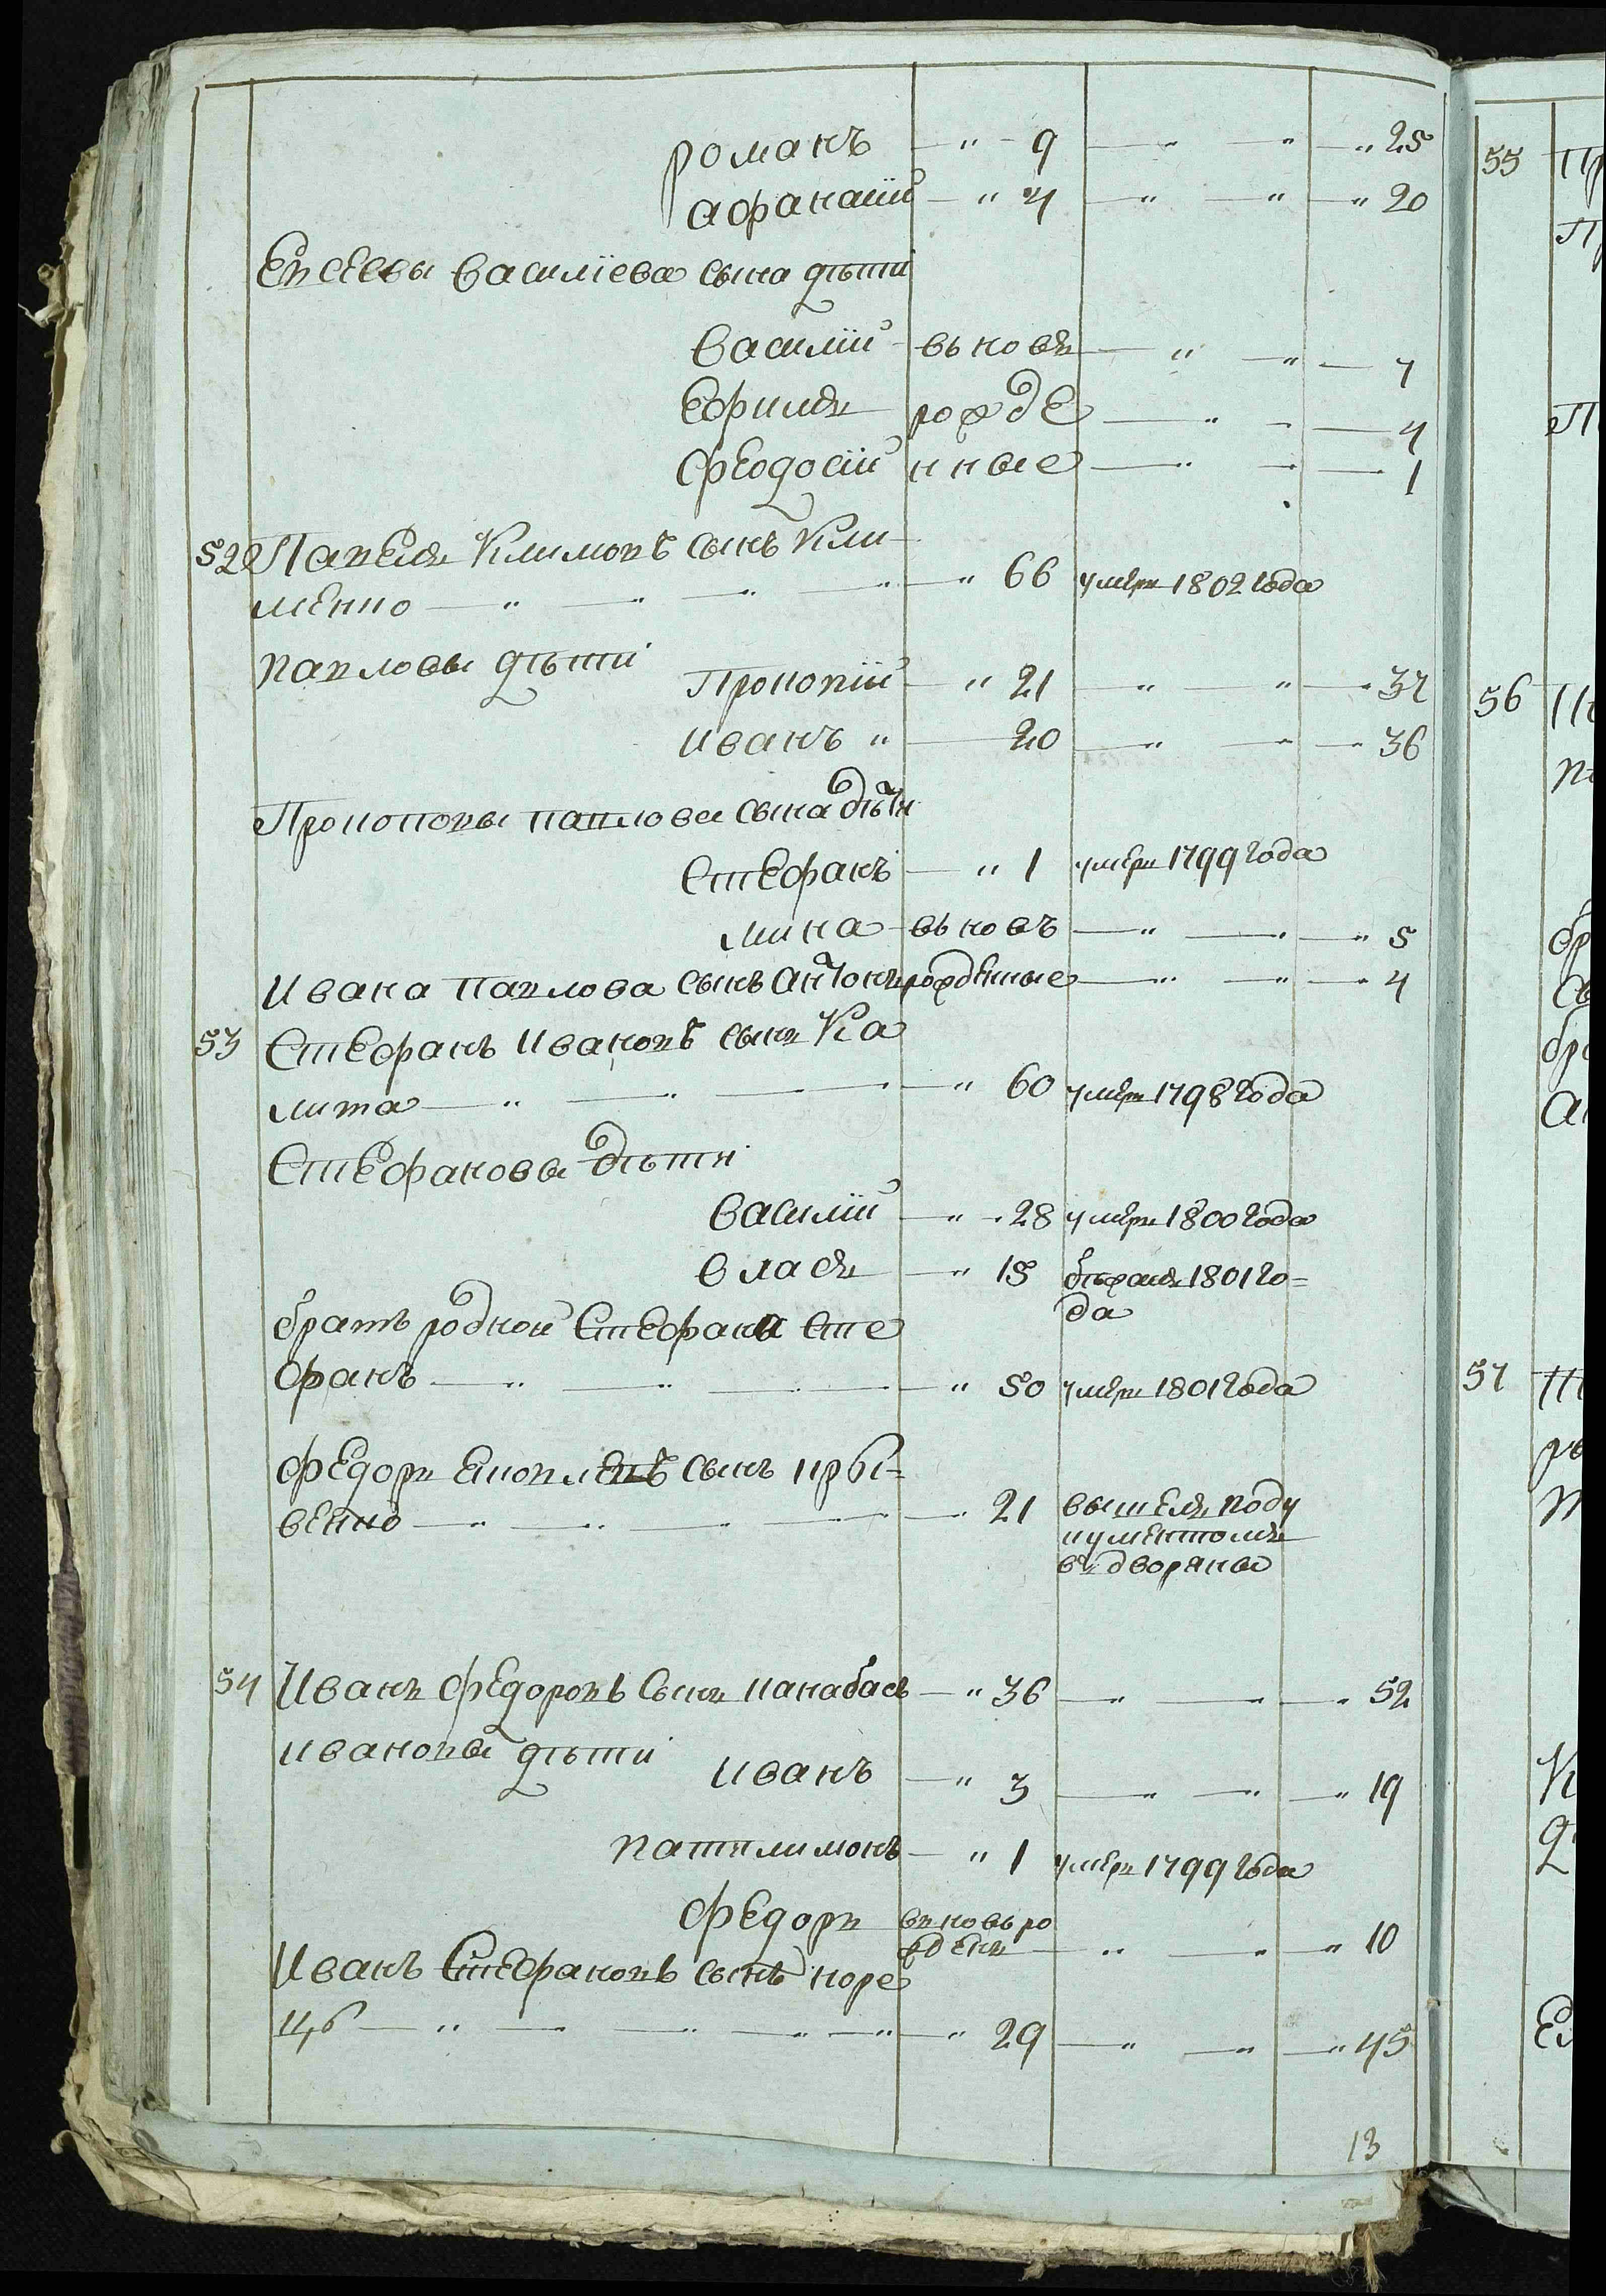 романъ — " — 9 — " — " — " 25
афанасій — " 4 — " — " — " 20
Евсеевы василіева сына дѣти
василій вьновь — " — " — 7
Ефимъ рожде — " — 4
феодосій нные — " — 1
52 Павелъ Климовъ сынъ Кли
менко — " — " — " — " 66 умеръ 1802 года
павловы дѣти
Прокопій — " 21 — " — " — 37
иванъ " — 20 — " — " 36
Прокоповы павлова сына дѣти
Стефанъ — " 1 умеръ 1799 года
мина вьновь — " — " — " 5
Ивана павлова сынъ антонъ рожденные — " — " — 4
53 Стефанъ Ивановъ сынъ Ка
лита — " — " — " — " 60 умеръ 1798 года
Стефановы дѣти
василій — " — 28 умеръ 1800 года
власъ — " 15 бѣжалъ 1801 го=
да
братъ родной Стефана Сте
фанъ — " — " — " 50 умеръ 1801 года
федоръ сынъ
венко — " — " — " — 21 вышелъ поду
кументомъ
въ дворяны
54 Иванъ федоровъ сынъ канабасъ — " 36 — " — " — 52
ивановы дѣти
иванъ — " 3 — " — " — " 19
пантилимонъ — " 1 умеръ 1799 года
федоръ вновь ро
жденъ — " — " — " 10
Иванъ Стефановъ сынъ коре
цкб — " — " — " — " — " 29 — " — " — " 45
13
55
56
57